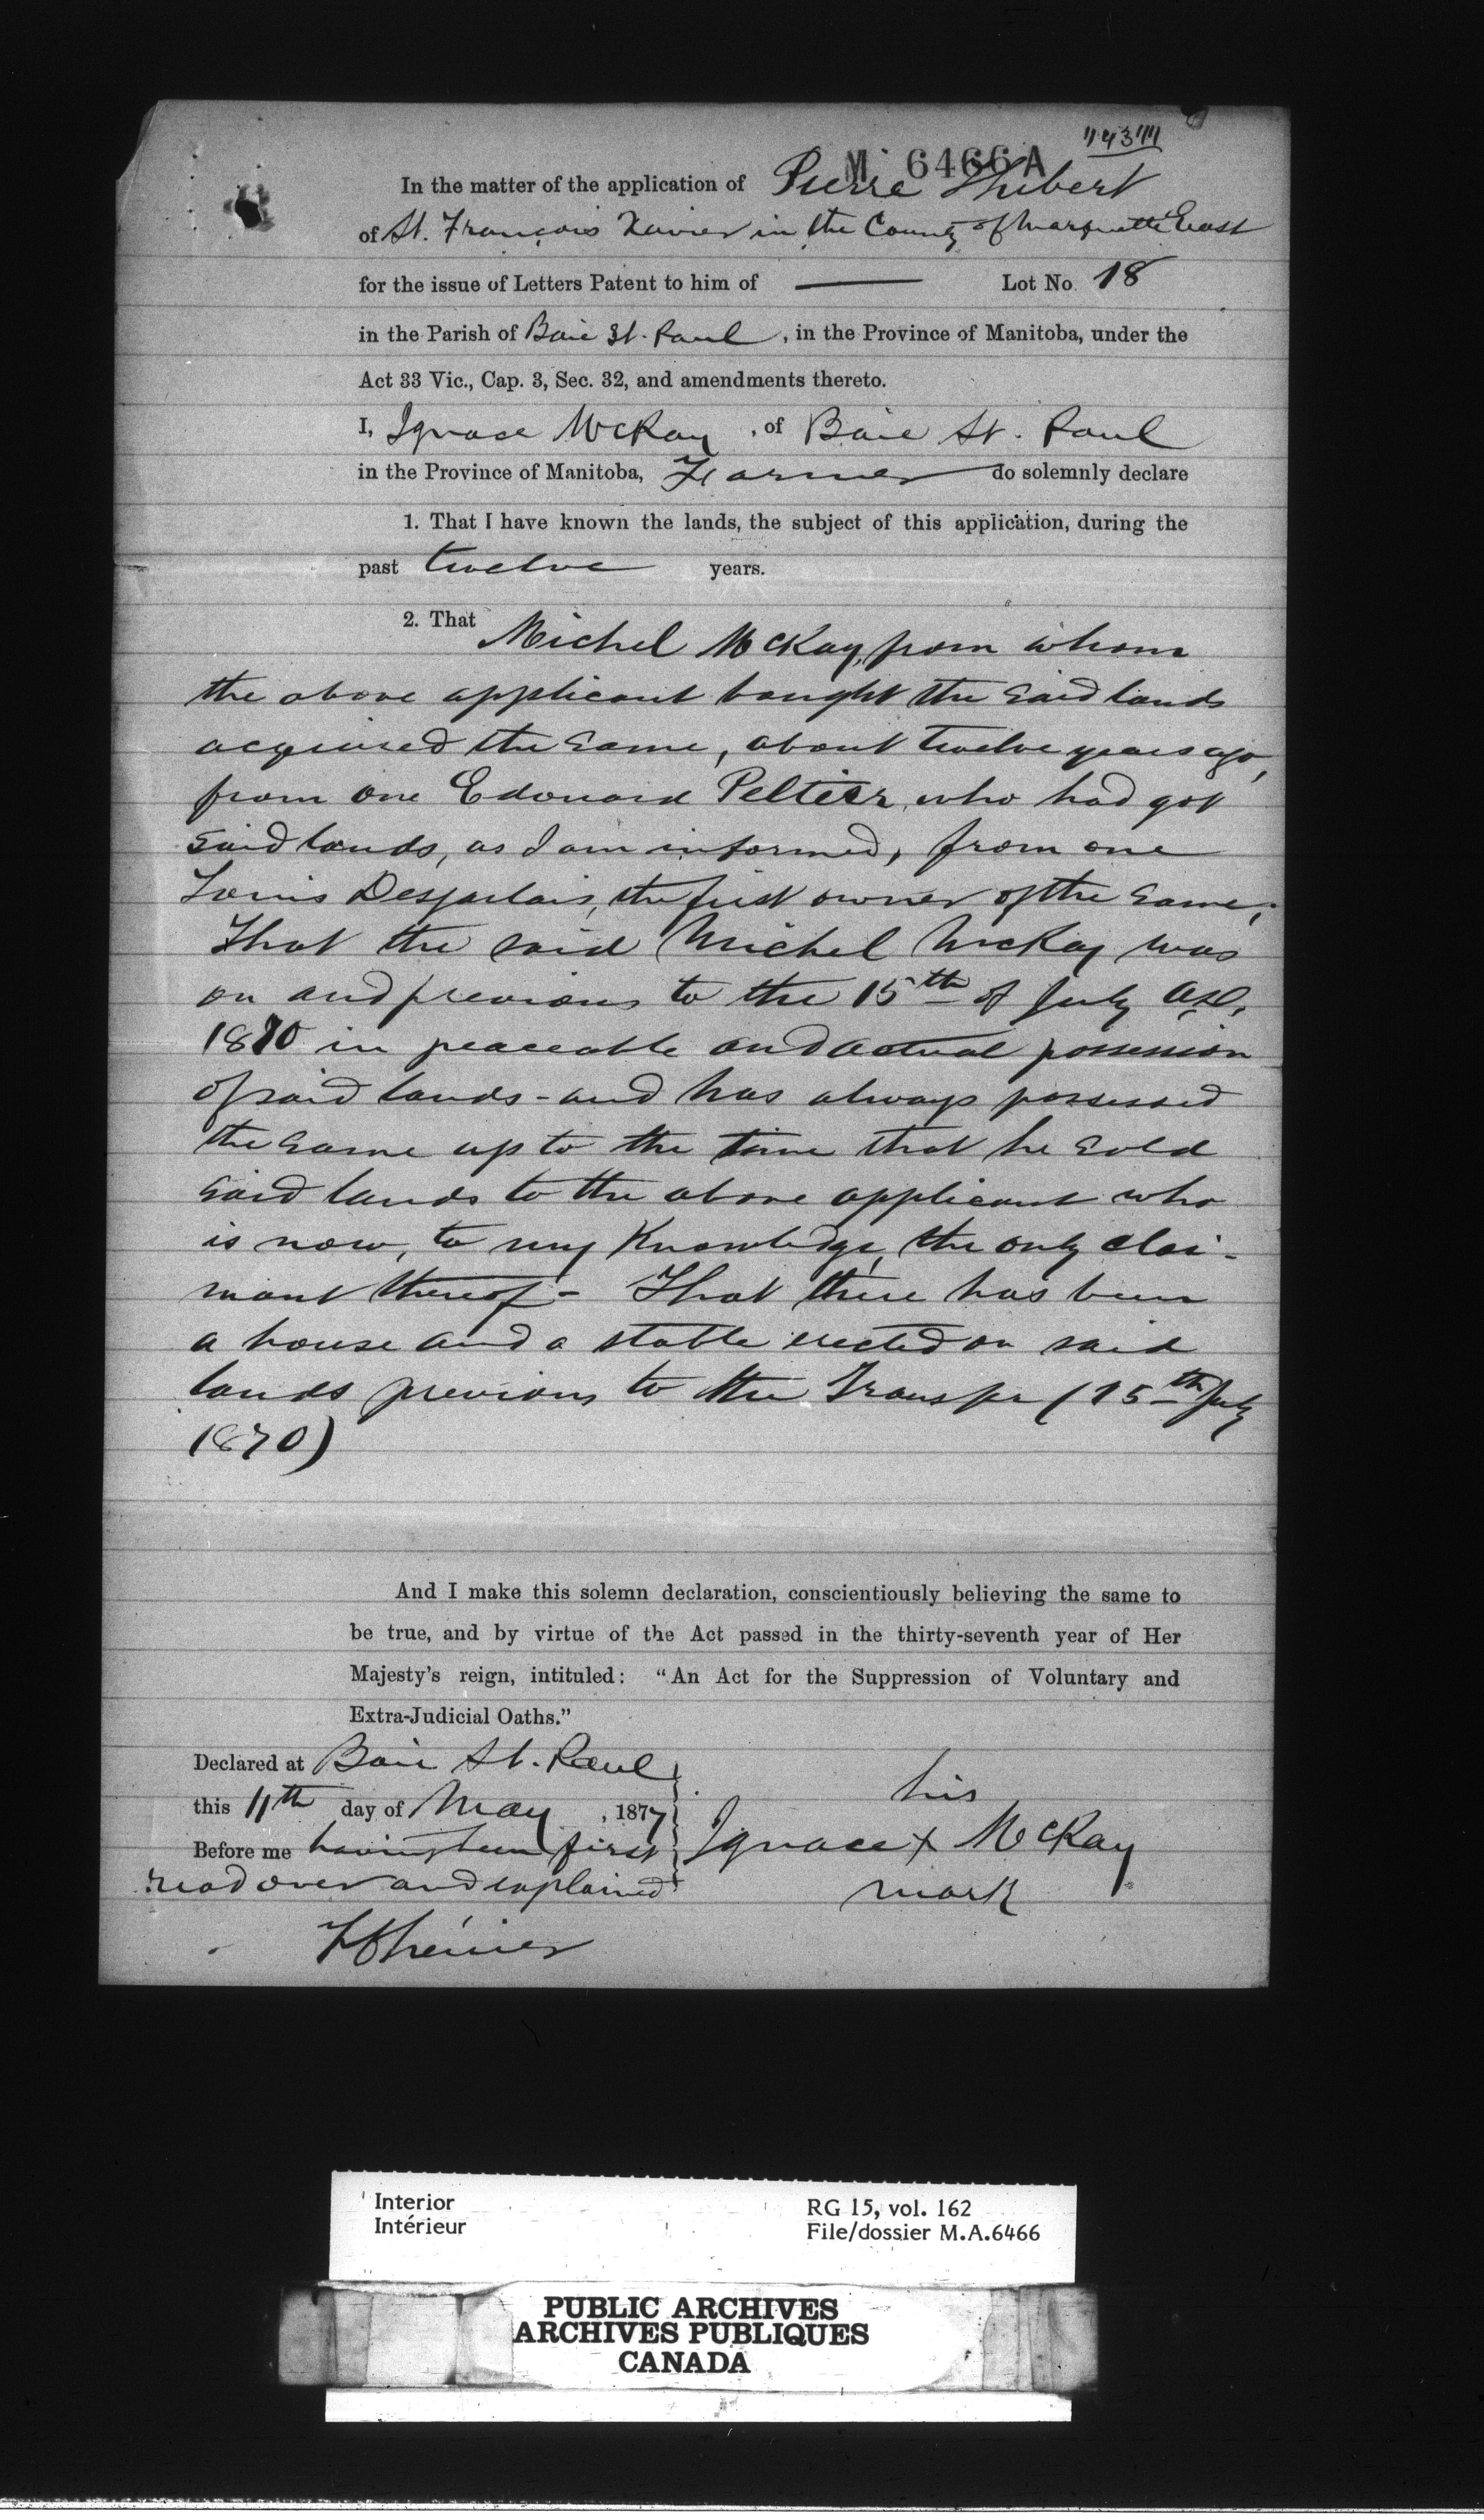 "43"
M 6466A
In the matter of the application of Pierre Thibert
of St. François Xavier in the County of Marquette East
for the issue of Letters Patent to him of —— Lot No. 18
in the Parish of Baie St. Paul, in the Province of Manitoba, under the
Act 33 Vic., Cap. 3, Sec. 32, and amendments thereto.
I, Ignace McKay, of Baie St. Paul
in the Province of Manitoba, Farmer do solemnly declare
1. That I have known the lands, the subject of this application, during the
past twelve years.
2. That Michel McKay, from whom
the above applicant bought the said lands
acquired the same, about twelve years ago,
from one Edouard Peltier, who had got
said lands, as I am informed, from one
Louis Desjarlais, the first owner of the same;
That the said Michel McKay was
on and previous to the 15th of July A.D.
1870 in peaceable and actual possession
of said lands - and has always possessed
the same up to the time that he sold
said lands to the above applicant who
is now, to my Knowledge, the only clai-
mant thereof - That there has been
a house and a stable erected on said
lands previous to the Transfer (15th July
1870)
And I make this solemn declaration, conscientiously believing the same to
be true, and by virtue of the Act passed in the thirty-seventh year of Her
Majesty's reign, intituled: "An Act for the Suppression of Voluntary and
Extra-Judicial Oaths."
Declared at Baie St. Paul
this 11th day of May, 1877
Before me having been first
read over and explained
his
Ignace X McKay
mark
Interior
Intérieur
RG 15, vol. 162
File/dossier M.A.6466
PUBLIC ARCHIVES
ARCHIVES PUBLIQUES
CANADA